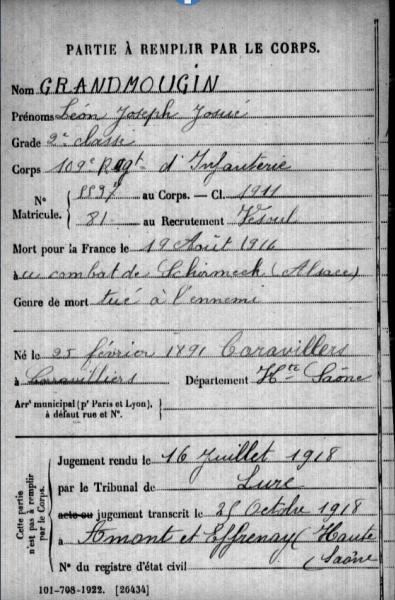 PARTIE À REMPLIR PAR LE CORPS.
Nom GRANDMOUGIN
Prénoms Léon Joseph Josué
Grade 2e classe
Corps 109e Regt d'Infanterie
No Matricule. { 5597 au Corps. — Cl. 1911
81 au Recrutement Vesoul
Mort pour la France le 19 Août 1916
à au combat de Schirmeck (Alsace)
Genre de mort tué à l'ennemi
Né le 25 février 1891 Caravillers
à Caravilliers Département Hte Saône
Arrt municipal (pr Paris et Lyon), à défaut rue et No.
Cette partie n'est pas à remplir par le Corps.
Jugement rendu le 16 Juillet 1918
par le Tribunal de Lure
acte ou jugement transcrit le 25 Octobre 1918
à Amont et Effrenay (Haute
Saône
No du registre d'état civil
101-708-1922. [26434]